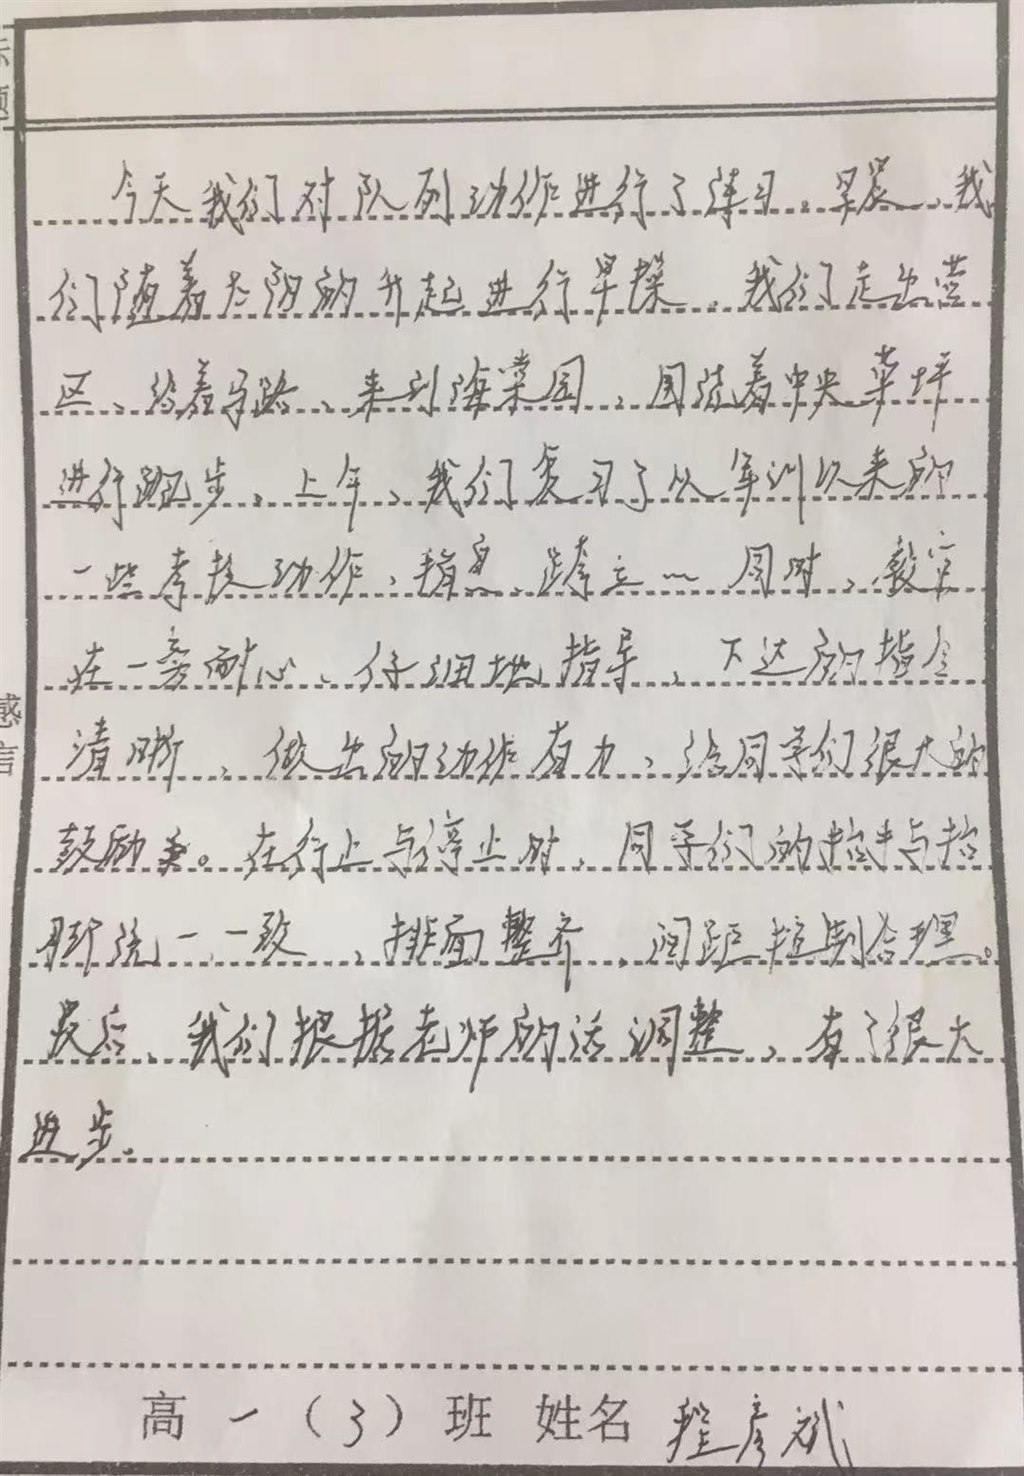 今天我们对队列动作进行了练习。早晨，我
们随着太阳的升起进行早操，我们走出营
区，沿着马路，来到海棠园，围绕着中央草坪
进行跑步，上午，我们复习了从军训以来的
一些考核动作，稍息，跨立… 同时，教官
在一旁耐心、仔细地指导，下达的指令
清晰，做出的动作有力，给同学们很大的
鼓励。在行止与停止时，同学们的与抬
脚统一一致，排面整齐，间距控制合理。
最后，我们根据老师的话调整，有了很大
进步。
感
言
高一（3）班 姓名 程彦斌